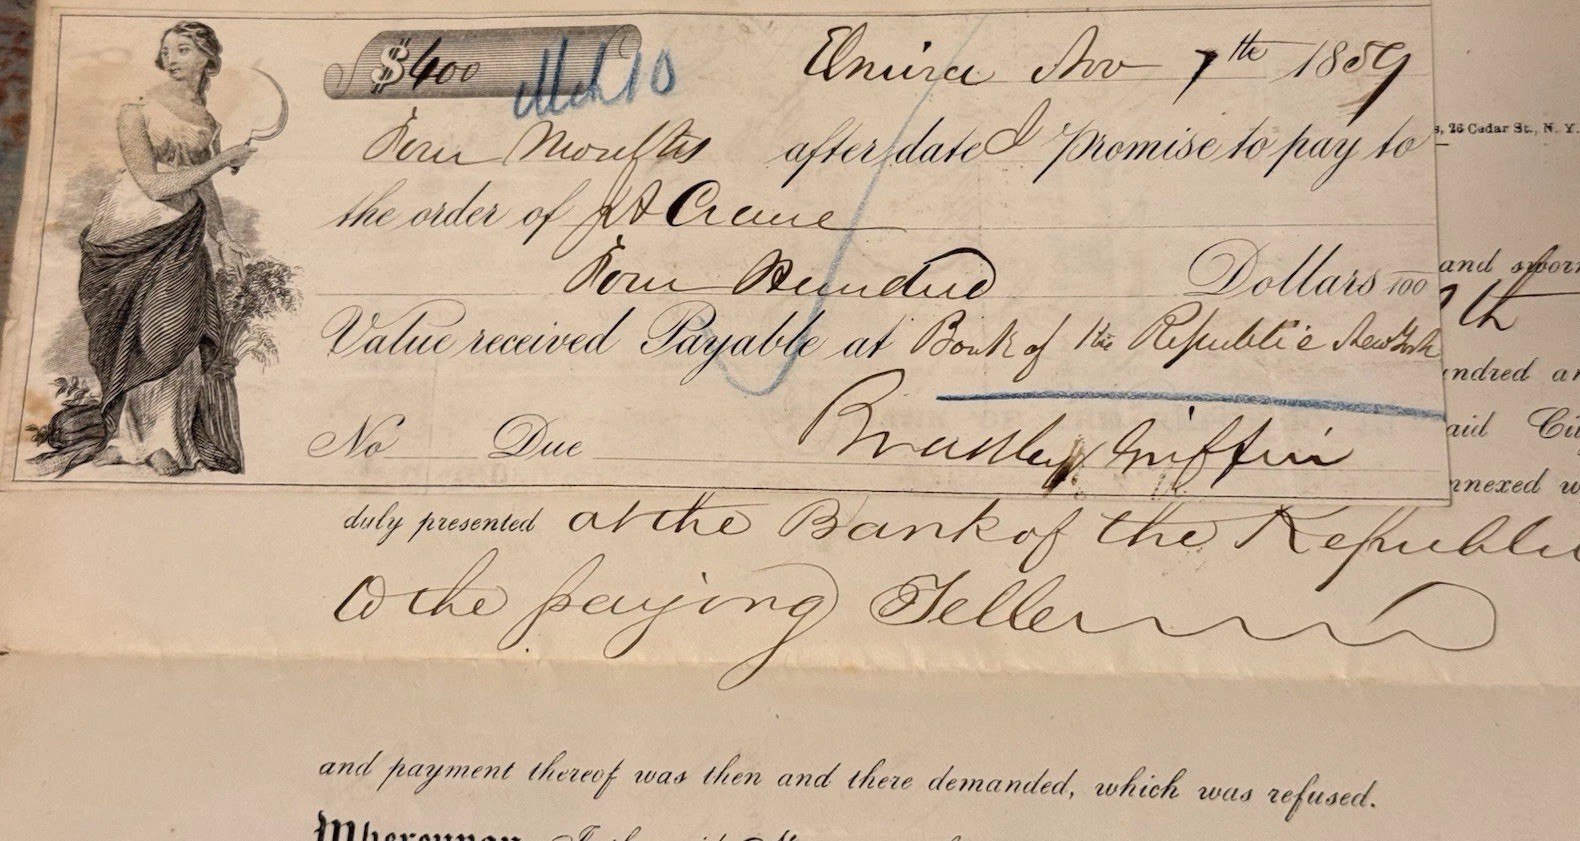 $400 Mch 10 Elmira Nov 7th 1859
Four Months after date I Promise to pay to
the order of J A Crane
Four Hundred Dollars 100
Value received Payable at Bank of the Republic New York
No Due Bradley Griffin
s, 26 Cedar St., N. Y.
and sworn
th
undred an
aid Cit
nnexed w
duly presented at the Bank of the Republic
to the paying Teller
and payment thereof was then and there demanded, which was refused.
Whereupon